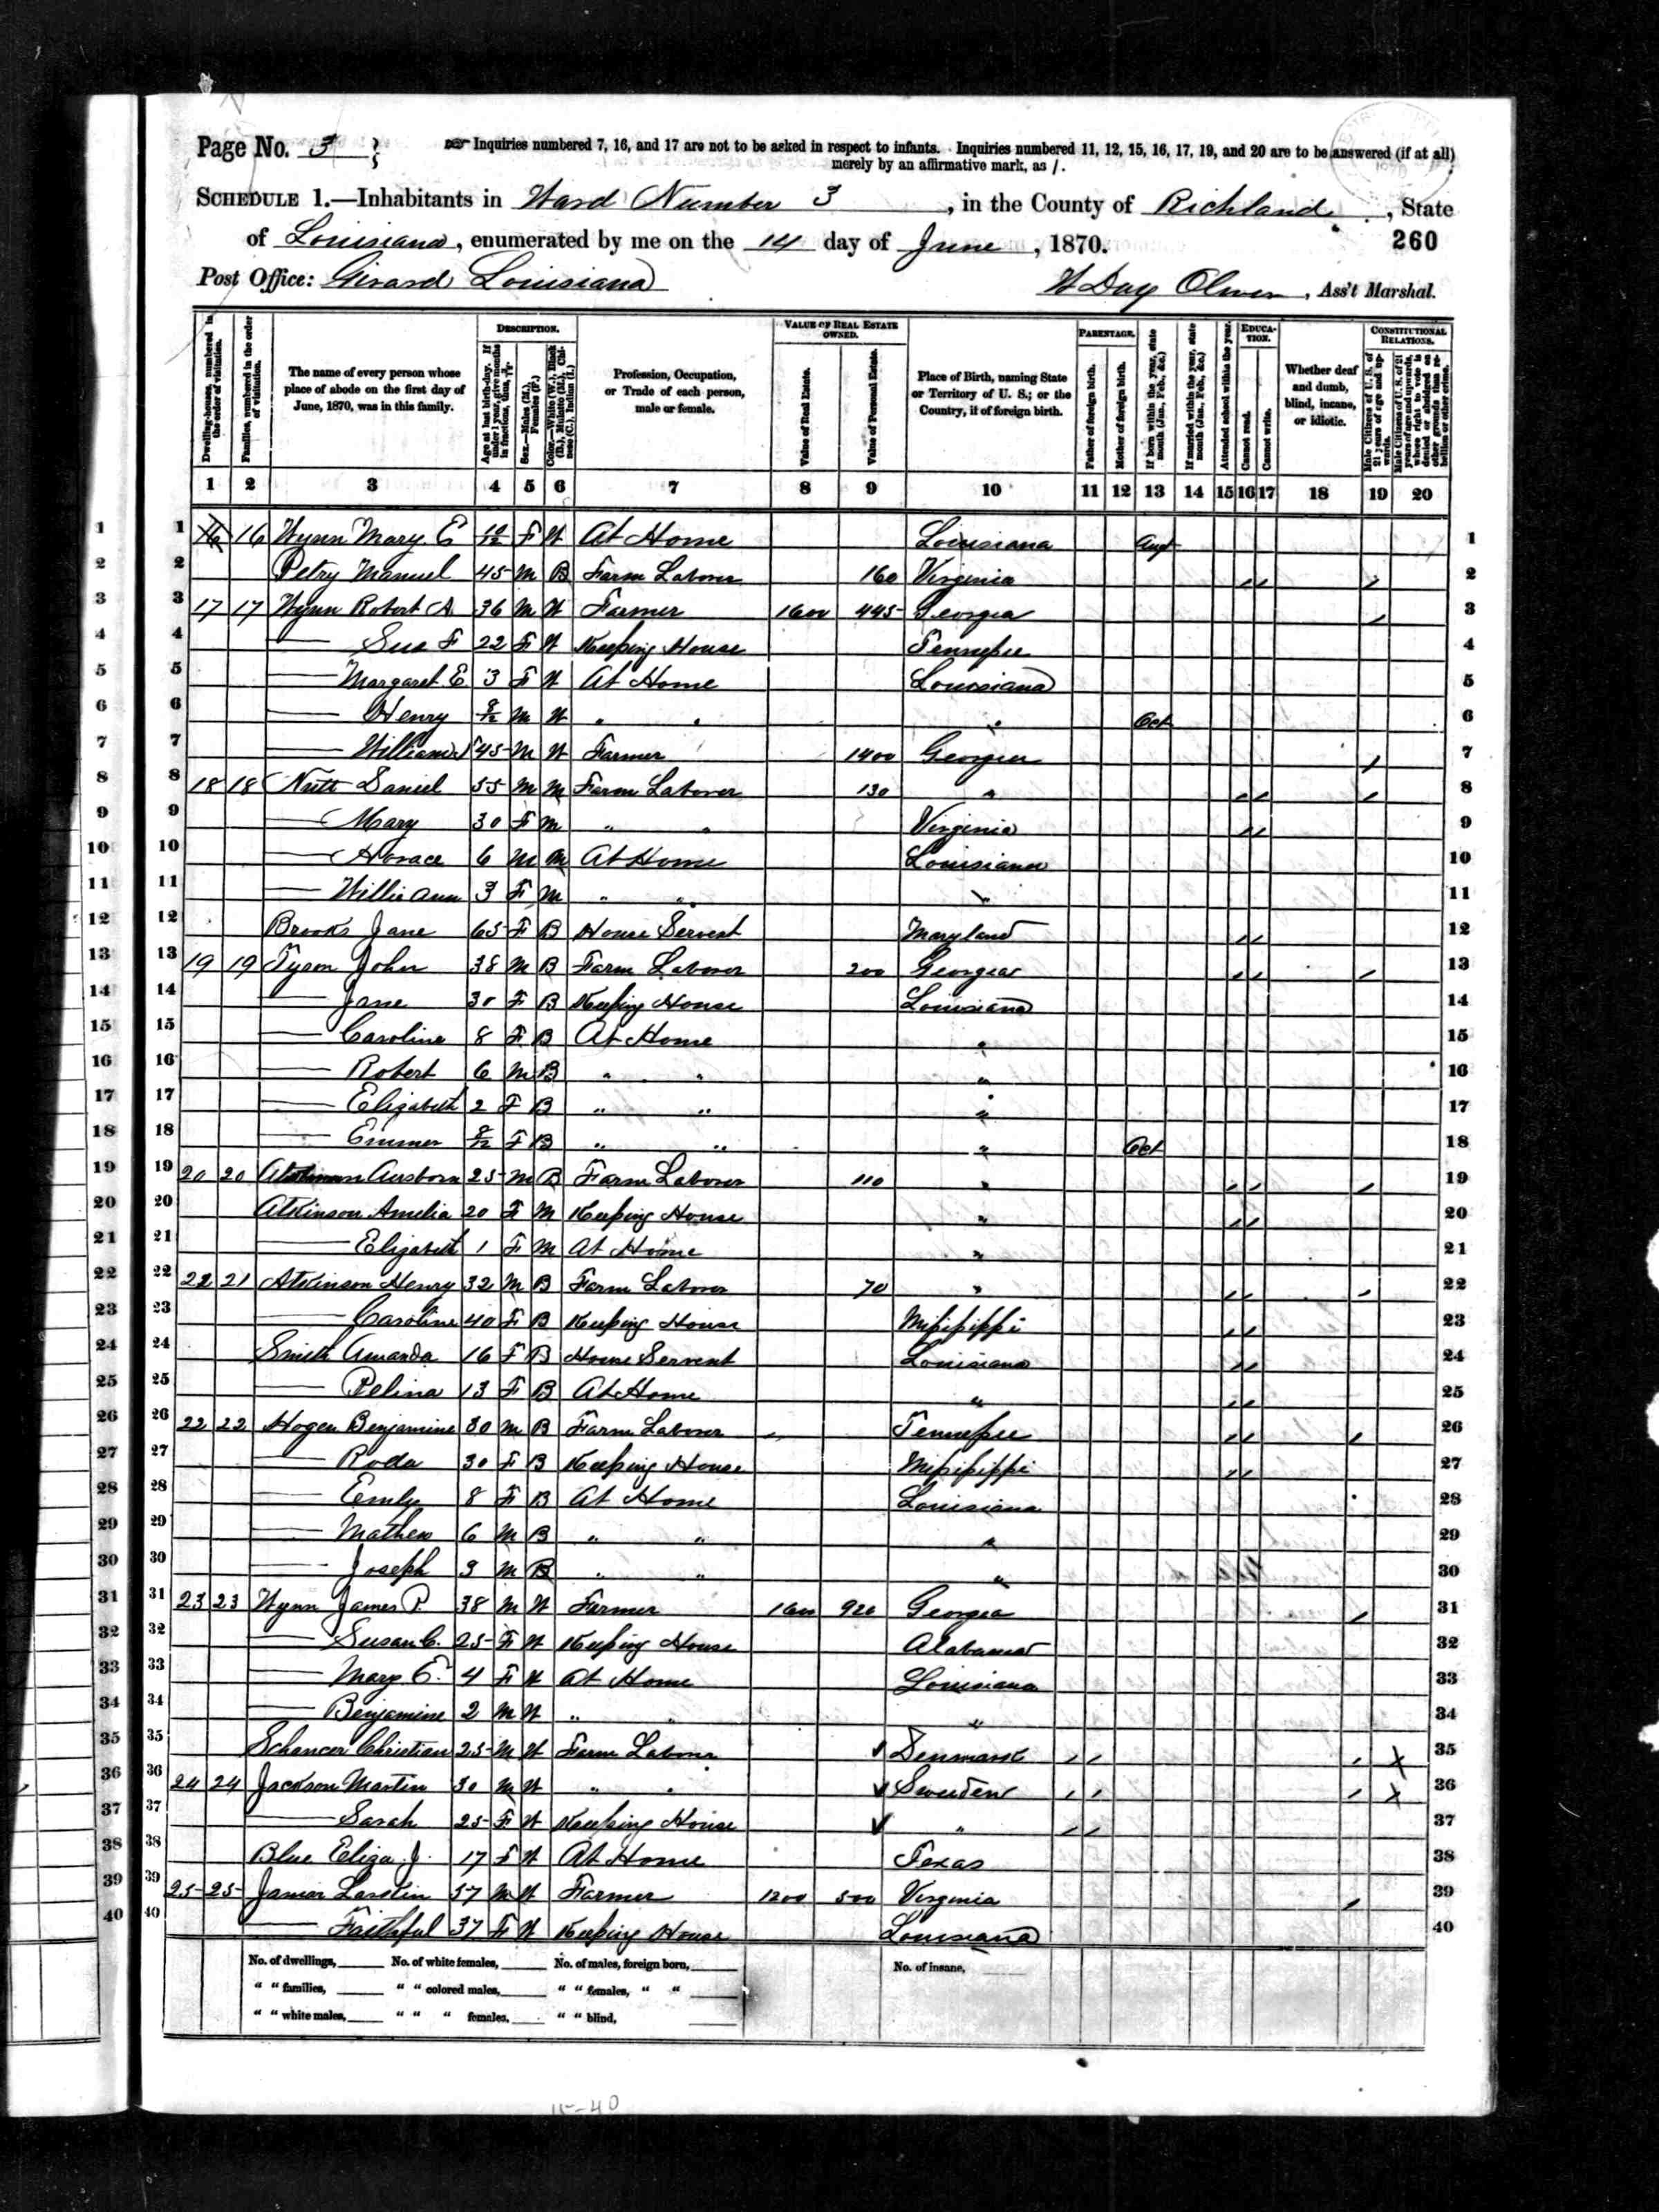 Page No. 3
Inquiries numbered 7, 16, and 17 are not to be asked in respect to infants. Inquiries numbered 11, 12, 15, 16, 17, 19, and 20 are to be answered (if at all)
merely by an affirmative mark, as /.
SCHEDULE 1.—Inhabitants in Ward Number 3, in the County of Richland, State
of Louisiana, enumerated by me on the 14 day of June, 1870. 260
Post Office: Girard Louisiana W Day, Ass't Marshal.
DESCRIPTION. VALUE OF REAL ESTATE OWNED. PARENTAGE. EDUCATION. CONSTITUTIONAL RELATIONS.
Dwelling-houses, numbered in the order of visitation.
Families, numbered in the order of visitation.
The name of every person whose place of abode on the first day of June, 1870, was in this family.
Age at last birth-day. If under 1 year, give months in fractions, thus, 3/12
Sex.—Males (M.), Females (F.)
Color.—White (W.), Black (B.), Mulatto (M.), Chinese (C.), Indian (I.)
Profession, Occupation, or Trade of each person, male or female.
Value of Real Estate.
Value of Personal Estate.
Place of Birth, naming State or Territory of U. S.; or the Country, if of foreign birth.
Father of foreign birth.
Mother of foreign birth.
If born within the year, state month (Jan., Feb., &c.)
If married within the year, state month (Jan., Feb., &c.)
Attended school within the year.
Cannot read.
Cannot write.
Whether deaf and dumb, blind, insane, or idiotic.
Male Citizens of U. S. of 21 years of age and upwards.
Male Citizens of U. S. of 21 years of age and upwards, whose right to vote is denied or abridged on other grounds than rebellion or other crime.
1 2 3 4 5 6 7 8 9 10 11 12 13 14 15 16 17 18 19 20
1 16 16 Wynn Mary E 10/12 F W At Home Louisiana Aug 1
2 Petry Manuel 45 M B Farm Laborer 160 Virginia / / / 2
3 17 17 Wynn Robert A. 36 M W Farmer 1600 445 Georgia / 3
4 — Sue F 22 F W Keeping House Tennessee 4
5 — Margaret E 3 F W At Home Louisiana 5
6 — Henry 8/12 M W " " " Oct 6
7 — William 45 M W Farmer 1400 Georgia / 7
8 18 18 Nutt Daniel 55 M M Farm Laborer 130 " / / / 8
9 — Mary 30 F M " " Virginia / / 9
10 — Horace 6 M M At Home Louisiana 10
11 — Willie Ann 3 F M " " " 11
12 Brooks Jane 65 F B House Servent Maryland / / 12
13 19 19 Tyson John 38 M B Farm Laborer 200 Georgia / / / 13
14 — Jane 30 F B Keeping House Louisiana 14
15 — Caroline 8 F B At Home " 15
16 — Robert 6 M B " " " 16
17 — Elizabeth 2 F B " " " 17
18 — Emmer 8/12 F B " " " Oct 18
19 20 20 Ausborn 25 M B Farm Laborer 110 " / / / 19
20 Atkinson Amelia 20 F M Keeping House " / / 20
21 — Elizabeth 1 F M At Home " 21
22 22 21 Atkinson Henry 32 M B Farm Laborer 70 " / / / 22
23 — Caroline 40 F B Keeping House Mississippi / / 23
24 Smith Amanda 16 F B House Servent Louisiana / / 24
25 — Pelina 13 F B At Home " / / 25
26 22 22 Hogen Benjamine 30 M B Farm Laborer Tennessee / / / 26
27 — Roda 30 F B Keeping House Mississippi / / 27
28 — Emly 8 F B At Home Louisiana 28
29 — Mathew 6 M B " " " 29
30 — Joseph 3 M B " " " 30
31 23 23 Wynn James P. 38 M W Farmer 1600 920 Georgia / 31
32 — Susan C. 25 F W Keeping House Alabama 32
33 — Mary E. 4 F W At Home Louisiana 33
34 — Benjamine 2 M W " " " 34
35 Christian 25 M W Farm Laborer Denmark / / / X 35
36 24 24 Jackson Martin 30 M W " " Sweden / / / X 36
37 — Sarah 25 F W Keeping House " / / 37
38 Blue Eliza J. 17 F W At Home Texas 38
39 25 25 57 M W Farmer 1200 500 Virginia / 39
40 — Faithful 37 F W Keeping House Louisiana 40
No. of dwellings, No. of white females, No. of males, foreign born, No. of insane,
" " families, " " colored males, " " females, " "
" " white males, " " " females, " " blind,
15-40